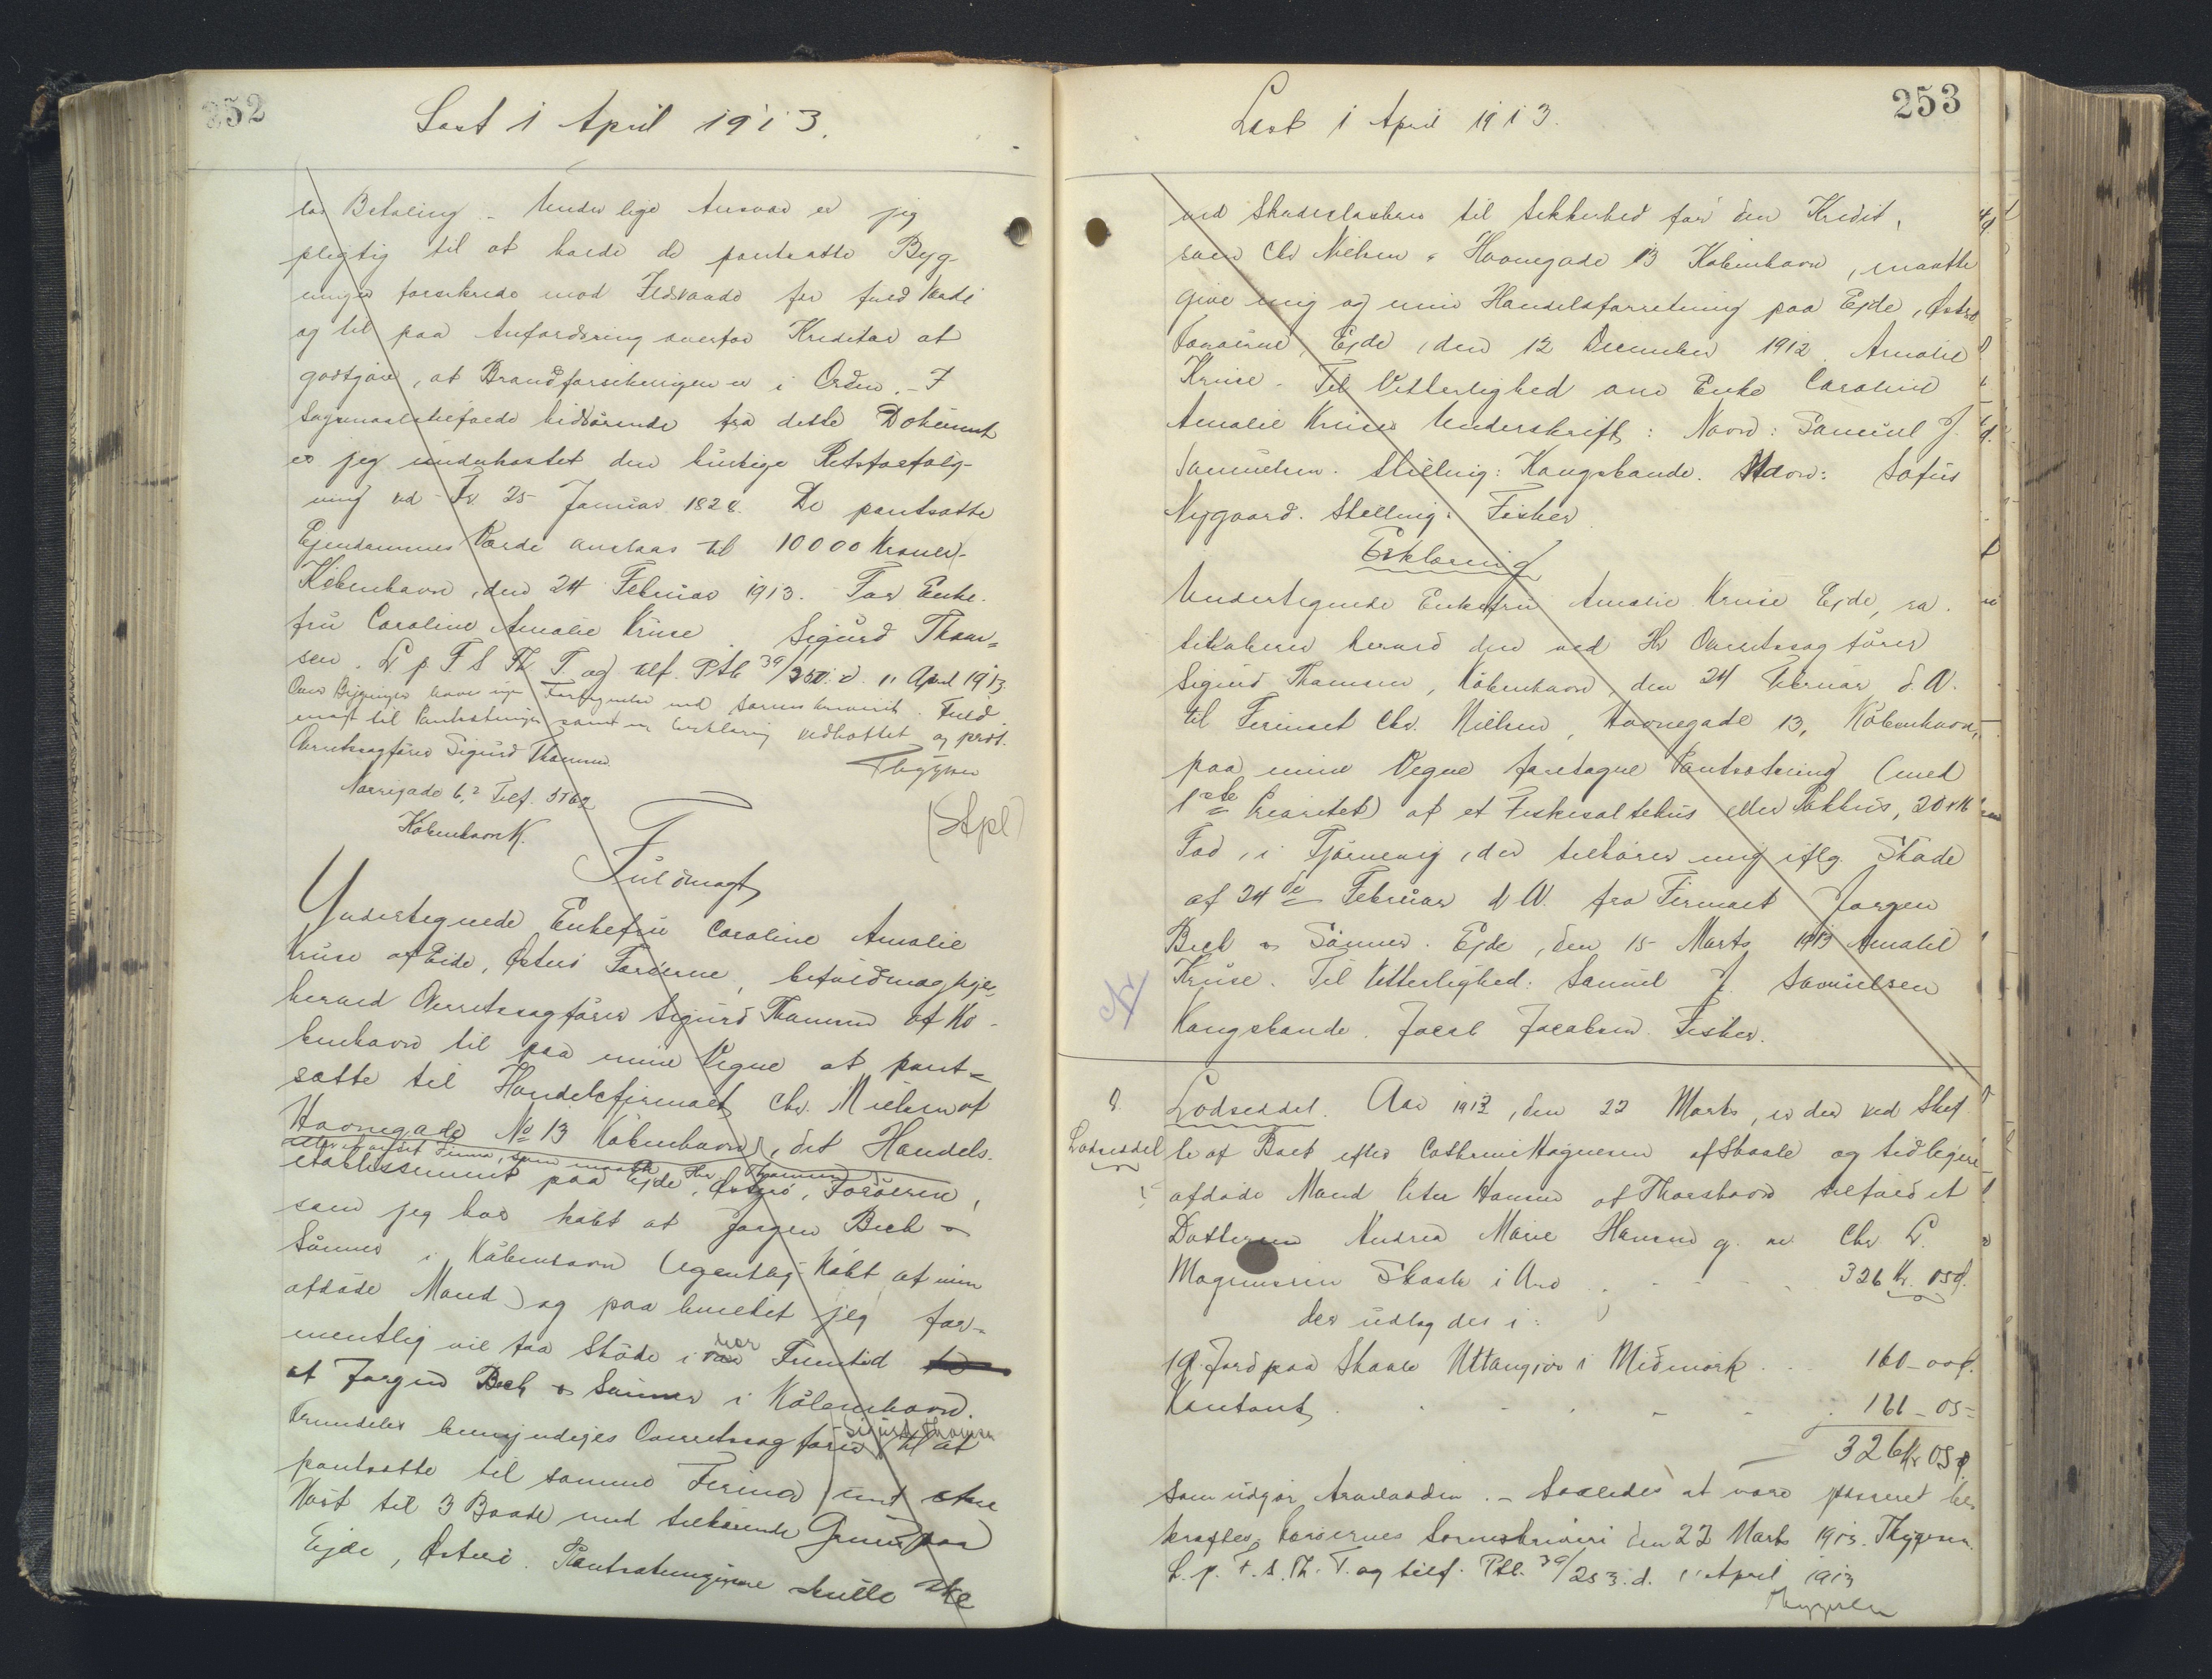 252
Læst 1 April 1913.
los Betaling. - Under lige Ansvar er jeg
pligtig til at holde de pantsatte Byg-
ninger forsikrede mod Ildsvaade for fuld Værdi
og til paa Anfordring overfor Kreditor at
godtgøre, at Brandforsikringen er i Orden. - I
Søgsmaalstilfælde hidrørende fra dette Dokument
er jeg underkastet den hurtige Retsforfølg-
ning ved Fr. 25 Januar 1828. De pantsatte
Ejendommes Værdi anslaas til 10000 Kroner.-
København, den 24 Februar 1913. For Enke-
fru Caroline Amalie Kruse Sigurd Thom-
sen. L. p. F. S. Th. T. og tilf. Ptb 39/250. d. 1' April 1913.
Over Bygninger haves ingen Fortegnelse ved Sorenskriveriet. Fuld
magt til Pantsætningen samt en Erklæring vedhæftet og prot.
Overretssagfører Sigurd Thomsen
Thygesen
Nørregade 6,² Telf. 5762
København K.
(Stpl)
Fuldmagt
Undertegnede Enkefru Caroline Amalie
Kruse af Eide, Østerø Færøerne, befuldmægtiger
herved Overretssagfører Sigurd Thomsen af Kø-
benhavn til paa mine Vegne at pant-
sætte til Handelsfirmaet Chr. Nielsen af
Havnegade No 13 København, det Handels-
eller et andet Firma, som maatte Hr Thomsen
etablissement paa Ejde, Østerø, Færøerne,
som jeg har købt af Jørgen Bech &
Sønner i København (egentlig købt af min
afdøde Mand) og paa hvilket jeg for-
mentlig vil faa Skøde i nær Fremtid
af Jørgen Bech & Sønner i København.
Fremdeles bemyndiges Overretssagfører Sigurd Thomsen til at
pantsætte til samme Firma mit
Nøst til 3 Baade med tilhørende Grund paa
Ejde, Østerø. Pantsætningerne skulle ske
253
Læst 1 April 1913.
ved Skadesløsbrev til Sikkerhed for den Kredit,
som Chr Nielsen, Havnegade 13 København, maatte
give mig og min Handelsforretning paa Ejde, Østerø
Færøerne, Ejde, den 12 December 1912. Amalie
Kruse. Til Vitterlighed om Enke Caroline
Amalie Kruses Underskrift: Navn: Samuel J.
Samuelsen. Stilling: Kongsbonde. Navn: Sofus
Nygaard. Stilling: Fisker.
Erklæring
Undertegnede Enkefru Amalie Kruse Ejde, ra-
tihaberer herved den ved Hr Overretssagfører
Sigurd Thomsen, København, den 24 Februar d. A.
til Firmaet Chr. Nielsen, Havnegade 13, København,
paa mine Vegne foretagne Pantsætning (med
1ste Prioritet) af et Fiskesaltehus eller Pakhus, 20 x 16
Fod, i Tjørnevig, der tilhører mig iflg. Skøde
af 24de Februar d A. fra Firmaet Jørgen
Bech & Sønner. Ejde, den 15 Marts 1913 Amalie
Kruse. Til Vitterlighed: Samuel J. Samuelsen
Kongsbonde. Jacob Jacobsen. Fisker.
Lodseddel
Lodseddel. Aar 1913, den 22 Marts, er der ved Skif
te af Boet efter Cathrine Magnusen af Skaale og tidligere
afdøde Mand Peter Hansen af Thorshavn tilfaldet
Datteren Andrea Marie Hansen g. m. Chr. L.
Magnussen Skaale i Arv . . . 326 Kr. 05 Ø.
der udlagdes i:
1 G. Jord paa Skaale Uttangjov i Miðmørk . . 160 - 00 Ø.
Kontant . . . . . 166 - 05 -
326 Kr 05 Ø.
som udgør Arvelodden. - Saaledes at være passeret be-
kræftes. Færøernes Sorenskriveri den 22 Marts 1913. Thygesen.
L. p. F. S. Th. T. og tilf. Ptb. 39/253. d. 1' April 1913
Thygesen